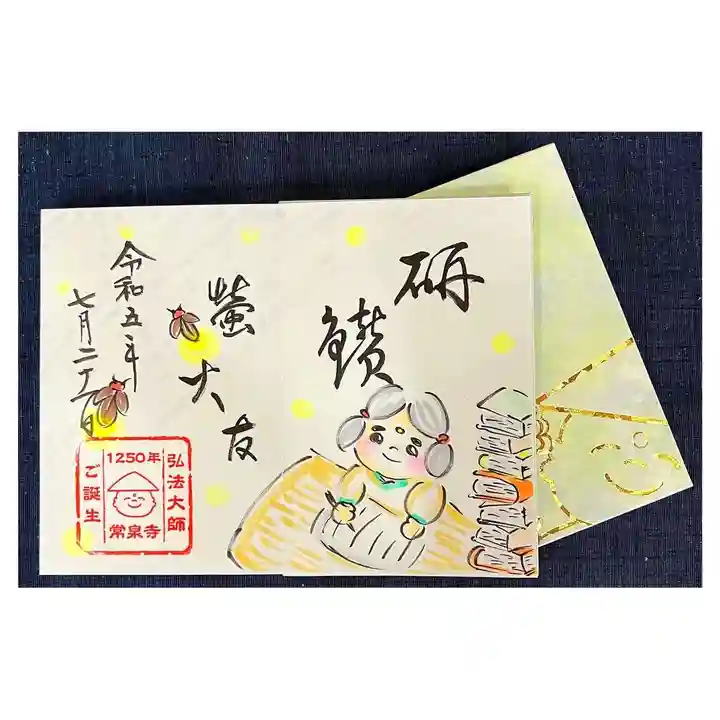 研
鑽
螢大友
令和五年
七月二十日
弘法大師
1250年
常泉寺
ご誕生